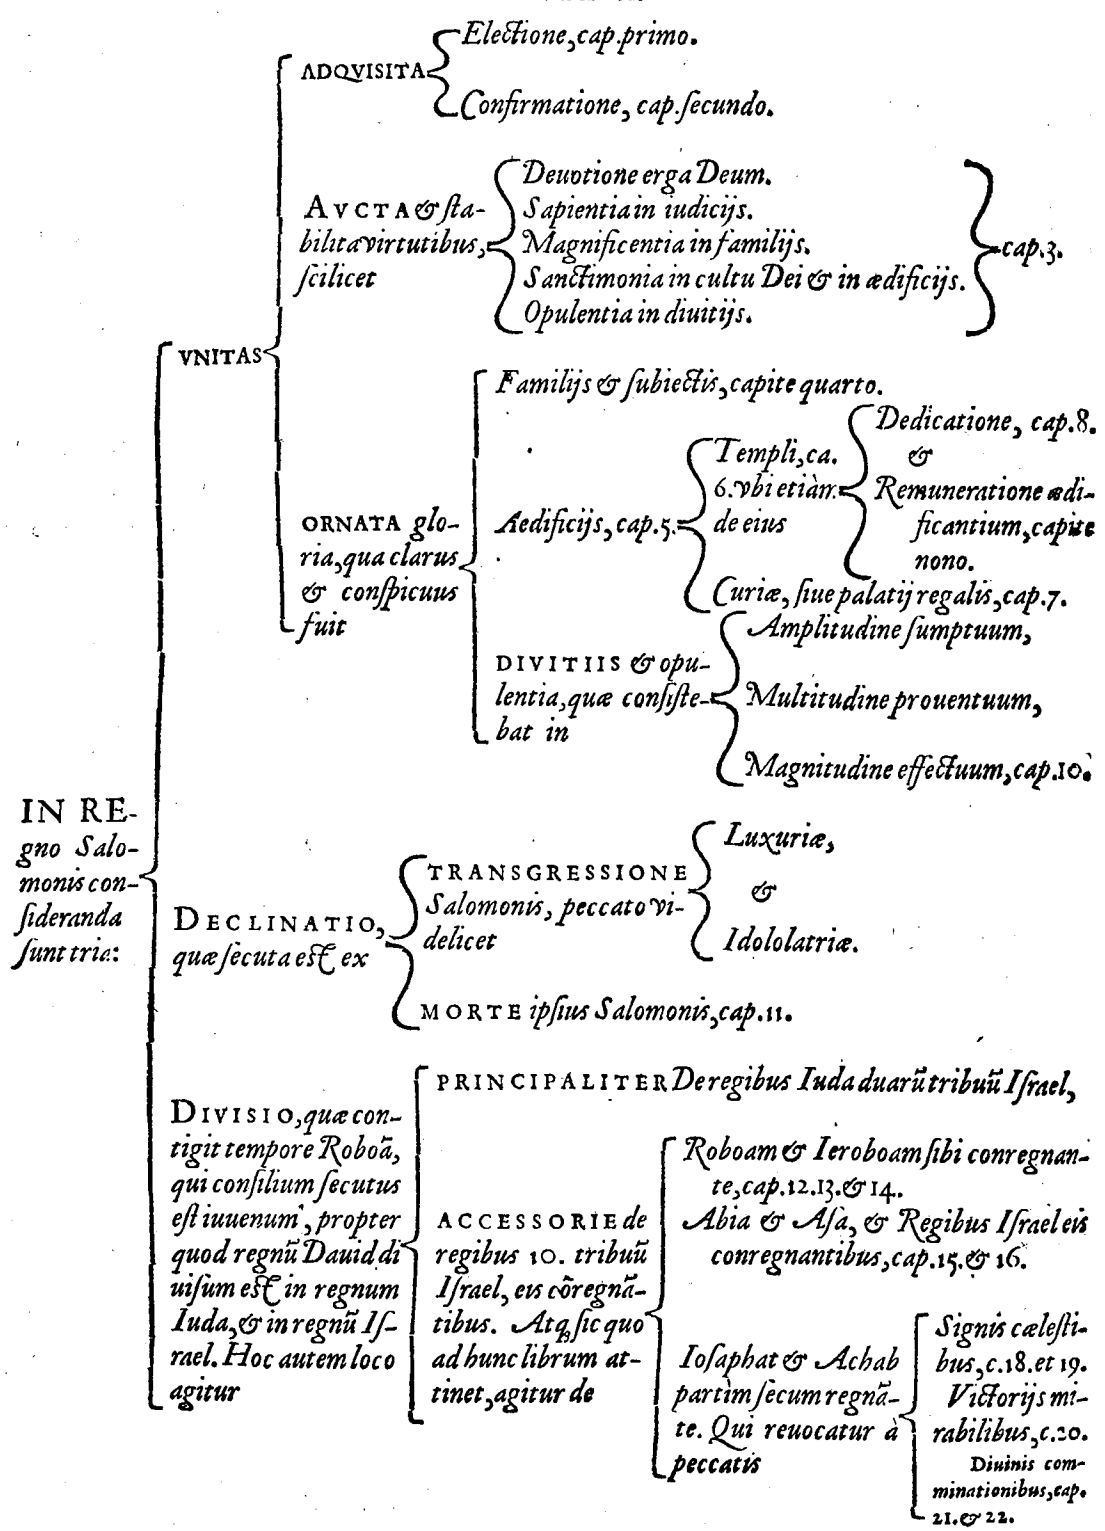 IN RE-
gno Salo-
monis con-
ſideranda
ſunt tria:
VNITAS
ADQVISITA
Electione, cap. primo.
Confirmatione, cap. ſecundo.
AVCTA & ſta-
bilita virtutibus,
ſcilicet
Deuotione erga Deum.
Sapientia in iudicijs.
Magnificentia in familijs.
Sanctimonia in cultu Dei & in ædificijs.
Opulentia in diuitijs.
cap. 3.
ORNATA glo-
ria, qua clarus
& conſpicuus
fuit
Familijs & ſubiectis, capite quarto.
Aedificijs, cap. 5.
Templi, ca.
6. vbi etiàm
de eius
Dedicatione, cap. 8.
&
Remuneratione ædi-
ficantium, capite
nono.
Curiæ, ſiue palatij regalis, cap. 7.
DIVITIIS & opu-
lentia, quæ conſiſte-
bat in
Amplitudine ſumptuum,
Multitudine prouentuum,
Magnitudine effectuum, cap. 10.
DECLINATIO,
quæ ſecuta eſt ex
TRANSGRESSIONE
Salomonis, peccato vi-
delicet
Luxuriæ,
&
Idololatriæ.
MORTE ipſius Salomonis, cap. 11.
DIVISIO, quæ con-
tigit tempore Roboã,
qui conſilium ſecutus
eſt iuuenum, propter
quod regnũ Dauid di
uiſum eſt in regnum
Iuda, & in regnũ Iſ-
rael. Hoc autem loco
agitur
PRINCIPALITER De regibus Iuda duarũ tribuũ Iſrael,
ACCESSORIE de
regibus 10. tribuũ
Iſrael, eis cõregnã-
tibus. Atq; ſic quo
ad hunc librum at-
tinet, agitur de
Roboam & Ieroboam ſibi conregnan-
te, cap. 12. 13. & 14.
Abia & Aſa, & Regibus Iſrael eis
conregnantibus, cap. 15. & 16.
Ioſaphat & Achab
partìm ſecum regnã-
te. Qui reuocatur à
peccatis
Signis cæleſti-
bus, c. 18. et 19.
Victorijs mi-
rabilibus, c. 20.
Diuinis com-
minationibus, cap.
21. & 22.